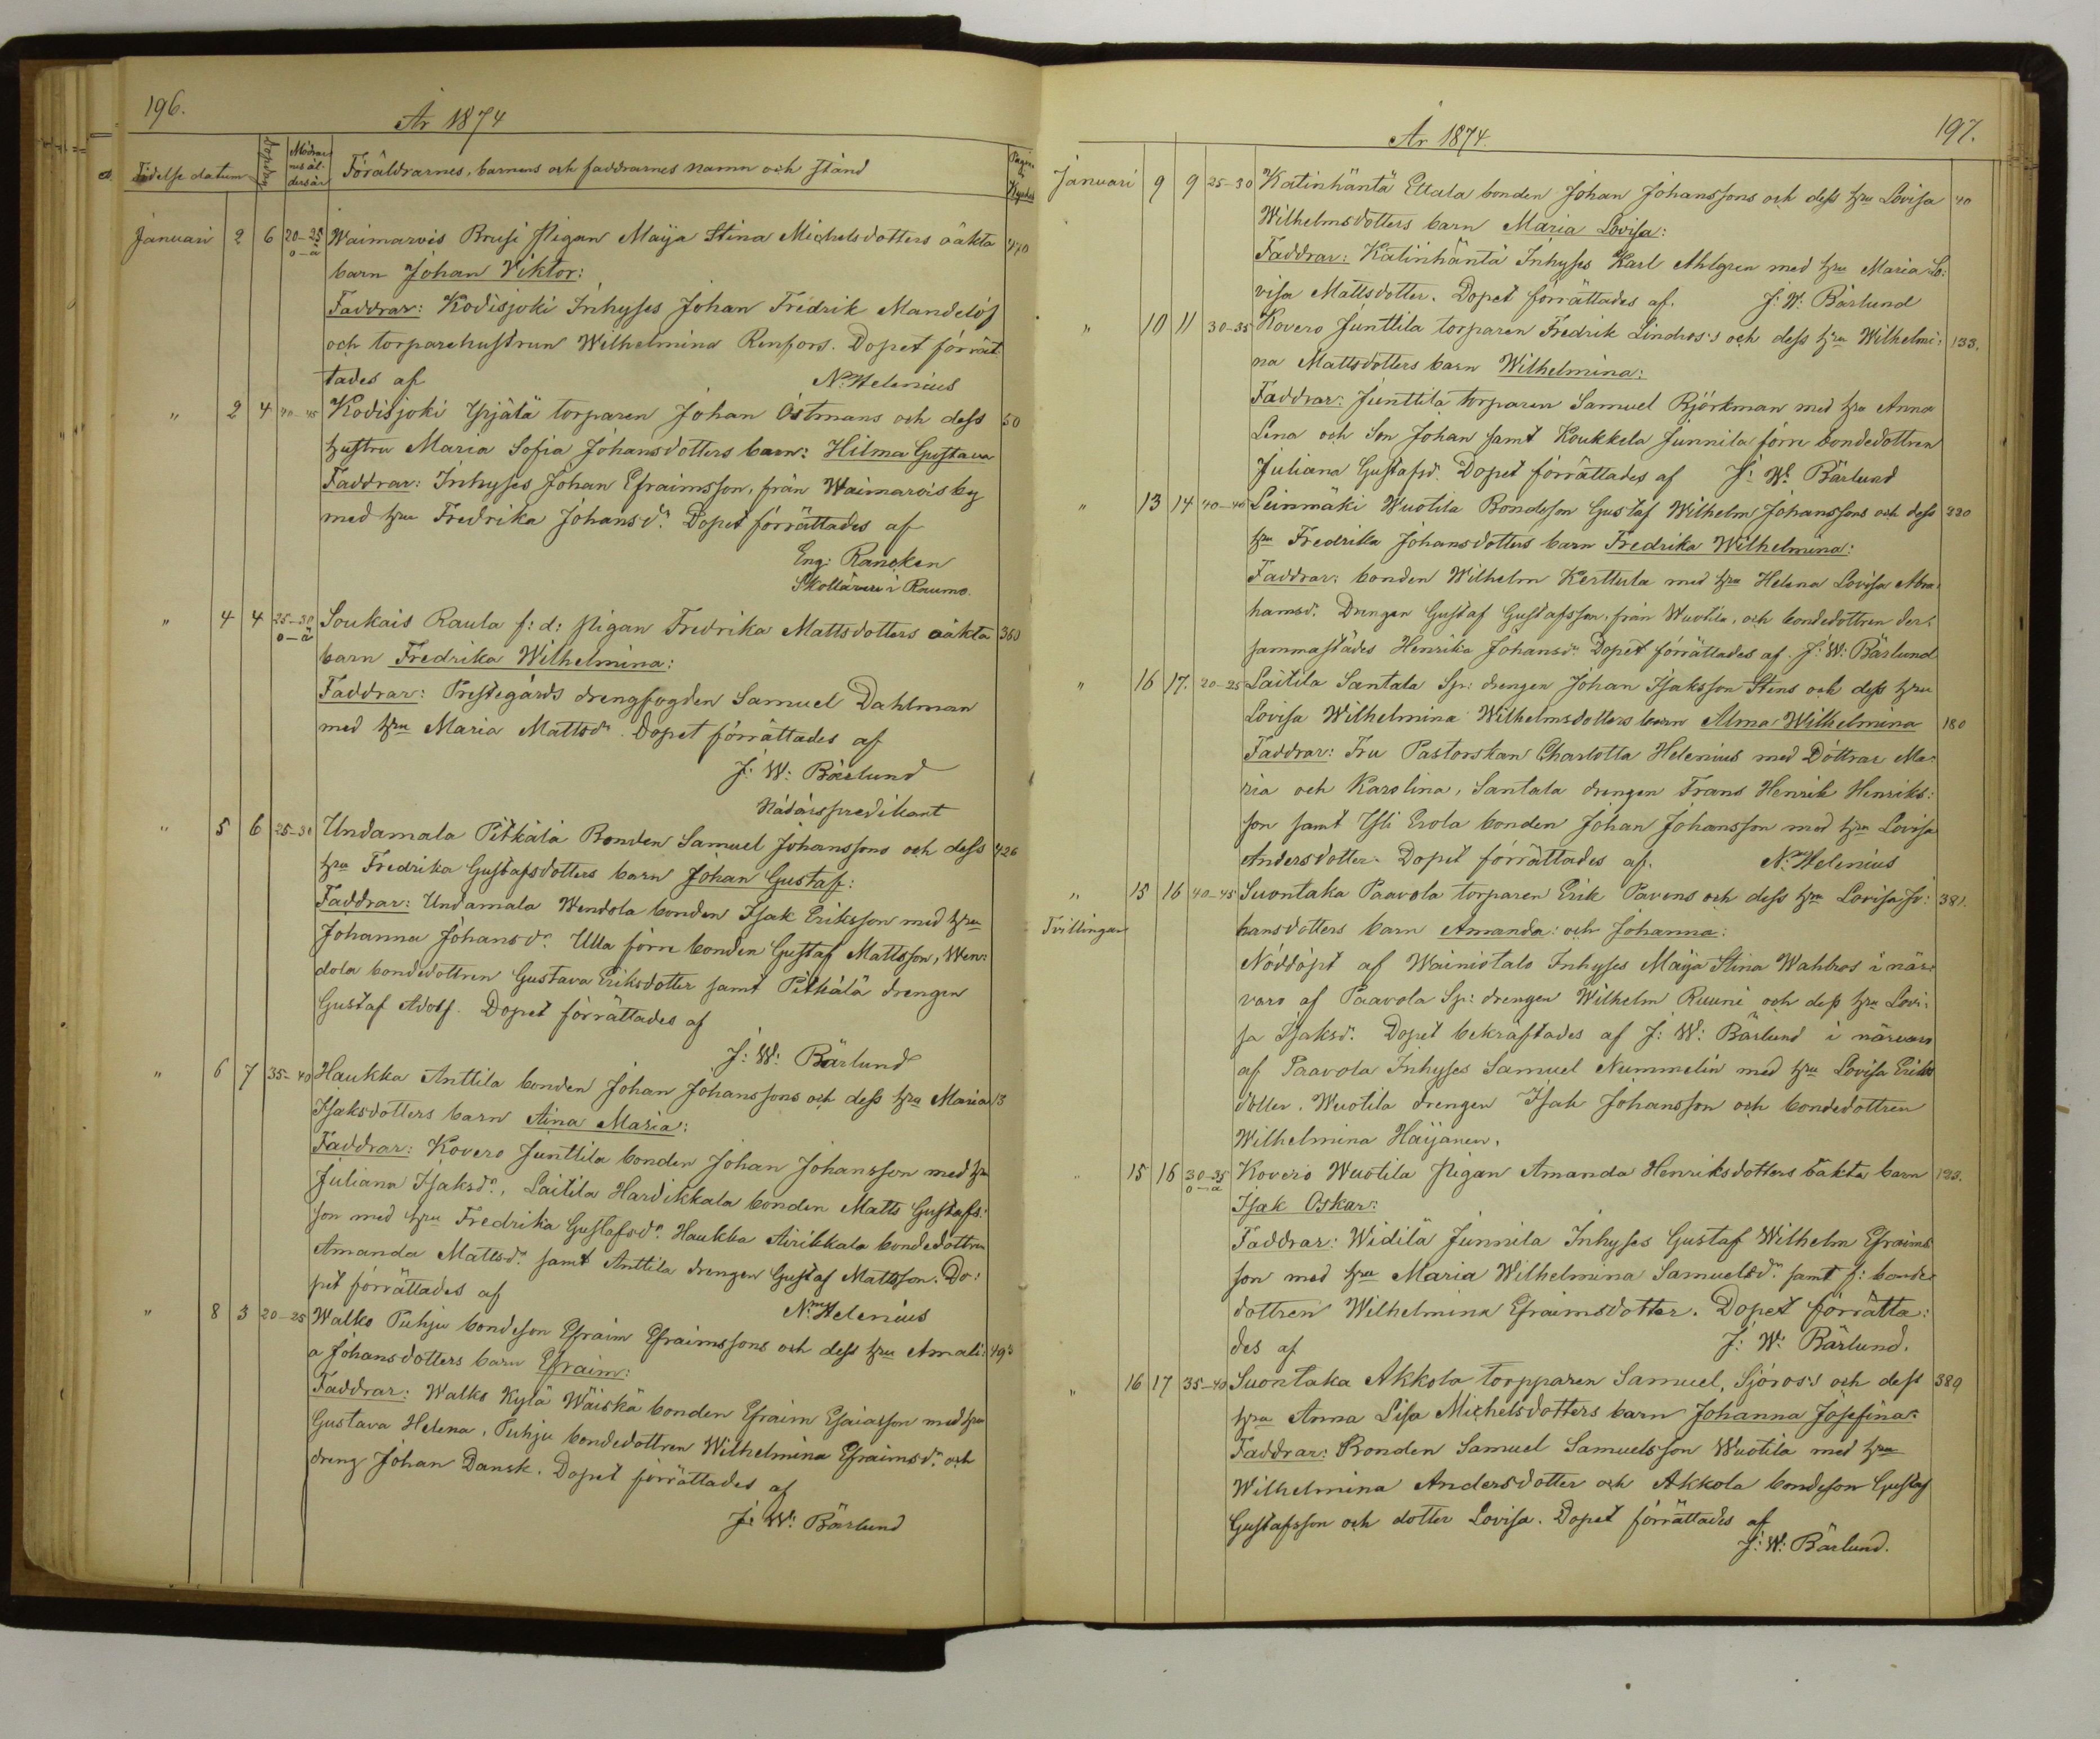 196.
År 1874
Födelse datum
Dopdag
Mödrar
nes ål-
ders år
Föräldrarnes, barnens och faddrarnes namn och stånd
Pagina
Januari 2 6 20-25 Waimarois Brusi pigan Maija Stina Michelsdotters oäkta 440
o-ä barn Johan Viktor:
Faddrar: Kodisjoki Inhyses Johan Fredrik Mandelöf
och torparehustrun Wilhelmina Renfors. Dopet förrät-
tades af N. Helenius
" 2 4 40-45 Kodisjoki Yrjälä torparen Johan Östmans och dess 50
hustru Maria Sofia Johansdotters barn: Hilma Gustava
Faddrar: Inhyses Johan Efraimsson, från Waimarois by
med hru Fredrika Johansdr. Dopet förrättades af
Eng: Rancken
Skollärare i Raumo.
" 4 4 25-30 Soukais Raula f: d: pigan Fredrika Mattsdotters oäkta 360
o-ä barn Fredrika Wilhelmina:
Faddrar: Prestegårds drengfogden Samuel Dahlman
med hru Maria Mattsdr. Dopet förrättades af
J: W: Bärlund
Nådårspredikant
" 5 6 25-30 Undamala Pitkälä Bonden Samuel Johanssons och dess 426
hru Fredrika Gustafsdotters barn Johan Gustaf:
Faddrar: Undamala Wendola bonden Isak Eriksson med hru
Johanna Johansdr. Ulla förre bonden Gustaf Mattsson, Wen:
dola bondedottren Gustava Eriksdotter samt Pitkälä drengen
Gustaf Adolf. Dopet förrättades af
J: W: Bärlund
" 6 7 35-40 Haukka Anttila bonden Johan Johanssons och dess hru Maria 13
Isaksdotters barn Aina Maria:
Faddrar: Kovero Junttila bonden Johan Johansson med hru
Juliana Isaksdr., Laitila Hardikkala bonden Matts Gustafs:
son med hru Fredrika Gustafsdr. Haukka Airikkala bondedottren
Amanda Mattsdr. samt Anttila drengen Gustaf Mattsson. Do:
pet förrättades af N. Helenius
" 8 3 20-25 Walko Puhju bondeson Efraim Efraimssons och dess hru Amali:
a Johansdotters barn Efraim:
Faddrar: Walko Kylä Wäiskä bonden Efraim Esaiasson med hru
Gustava Helena, Puhju bondedottren Wilhelmina Efraimsdr. och
dreng Johan Dansk. Dopet förrättades af
J: W: Bärlund
År 1874.
197.
Januari 9 9 25-30 Katinhäntä Ettala bonden Johan Johanssons och dess hru Lovisa 40
Wilhelmsdotters barn Maria Lovisa:
Faddrar: Katinhäntä Inhyses Karl Ahlgren med hru Maria Lo:
visa Mattsdotter. Dopet förrättades af. J: W: Bärlund
" 10 11 30-35 Kovero Junttila torparen Fredrik Lindros's och dess hru Wilhelmi: 133.
na Mattsdotters barn Wilhelmina:
Faddrar: Junttila torparen Samuel Björkman med hru Anna
Lena och Son Johan samt Koukkela Junnila förre bondedottren
Juliana Gustafsd. Dopet förrättades af J: W: Bärlund
" 13 14 40-45 Leinmäki Wuotila Bondeson Gustaf Wilhelm Johanssons och dess 220
hru Fredrika Johansdotters barn Fredrika Wilhelmina:
Faddrar: bonden Wilhelm Kerttula med hru Helena Lovisa Abra:
hamsdr. Drengen Gustaf Gustafsson, från Wuotila, och bondedottren der:
sammastädes Henrika Johansdr. Dopet förrättades af J: W: Bärlund
" 16 17. 20-25 Laitila Santala Sp: drengen Johan Isaksson Stens och dess hru
Lovisa Wilhelmina Wilhelmsdotters barn Alma Wilhelmina 180
Faddrar: Fru Pastorskan Charlotta Helenius med Döttrar Ma:
ria och Karolina, Santala drengen Frans Henrik Henriks:
son samt Ylli Erola bonden Johan Johansson med hru Lovisa
Andersdotter. Dopet förrättades af. N. Helenius
" 15 16 40-45 Suontaka Paavola torparen Erik Pavens och dess hru Lovisa Jo: 381.
Tvillingar hansdotters barn Amanda: och Johanna:
Nöddöpt af Wainiotalo Inhyses Maija Stina Wahlros i när:
varo af Paavola Sp: drengen Wilhelm Ruuni och dess hru Lovi:
sa Isaksd. Dopet bekräftades af J: W: Bärlund i närvaro
af Paavola Inhyses Samuel Nummelin med hru Lovisa Eriks
dotter. Wuotila drengen Isak Johansson och bondedottren
Wilhelmina Haijanen.
" 15 16 30-35 Kovero Wuotila pigan Amanda Henriksdotters oäkta barn 123.
o-ä Isak Oskar:
Faddrar: Widilä Junnila Inhyses Gustaf Wilhelm Efraims
son med hru Maria Wilhelmina Samuelsdr. samt f: bonde
dottren Wilhelmina Efraimsdotter. Dopet förrätta:
des af J: W: Bärlund.
" 16 17 35-40 Suontaka Akkola torpparen Samuel, Sjöros's och dess 389
hru Anna Lisa Michelsdotters barn Johanna Josefina:
Faddrar: Bonden Samuel Samuelsson Wuotila med hru
Wilhelmina Andersdotter och Akkola bondeson Gustaf
Gustafsson och dotter Lovisa. Dopet förrättades af
J: W: Bärlund.